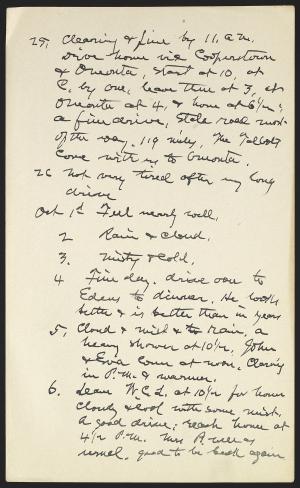 25, Clearing & fine by 11, a.m.
Drive home via Cooperstown
& Oneonta, start at 10, at
C. by one, leave there at 3, at
Oneonta at 4, & home at 6½ -
a fine drive, State road most
of the way. 119 miles, The Talbots
come with us to Oneonta.
26 Not very tired after my long
drive
Oct 1st Feel nearly well.
2 Rain & cloud.
3. Misty & cold.
4 Fine day. drive over to
Edens to dinner. He looks
better & is better than in years
5, Cloud & mist & rain, a
heavy shower at 10½, John
& Eva come at noon. Clearing
in P.M. & warmer.
6. Leave W.C.L. at 10½ for home
cloudy & cool with some mist.
A good drive; reach home at
4½ P.M. Mrs B. well as
usual. good to be back again